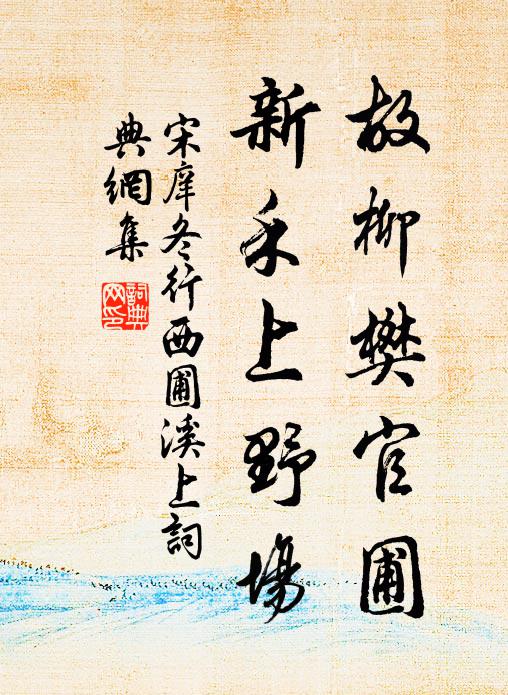 故柳樊官圃
新禾上野場
宋庠冬行西圃溪上詞
典網集
詞典
网印